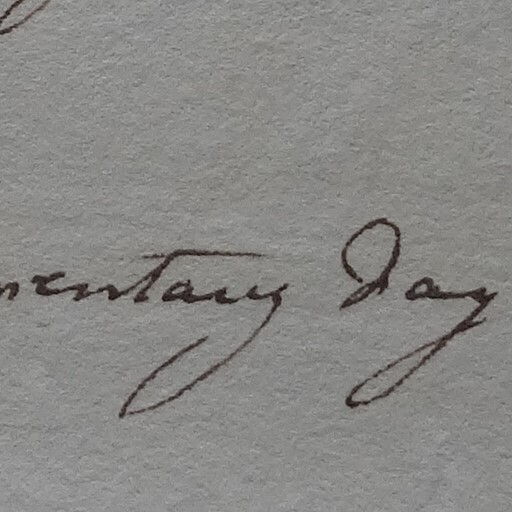 mentary Day